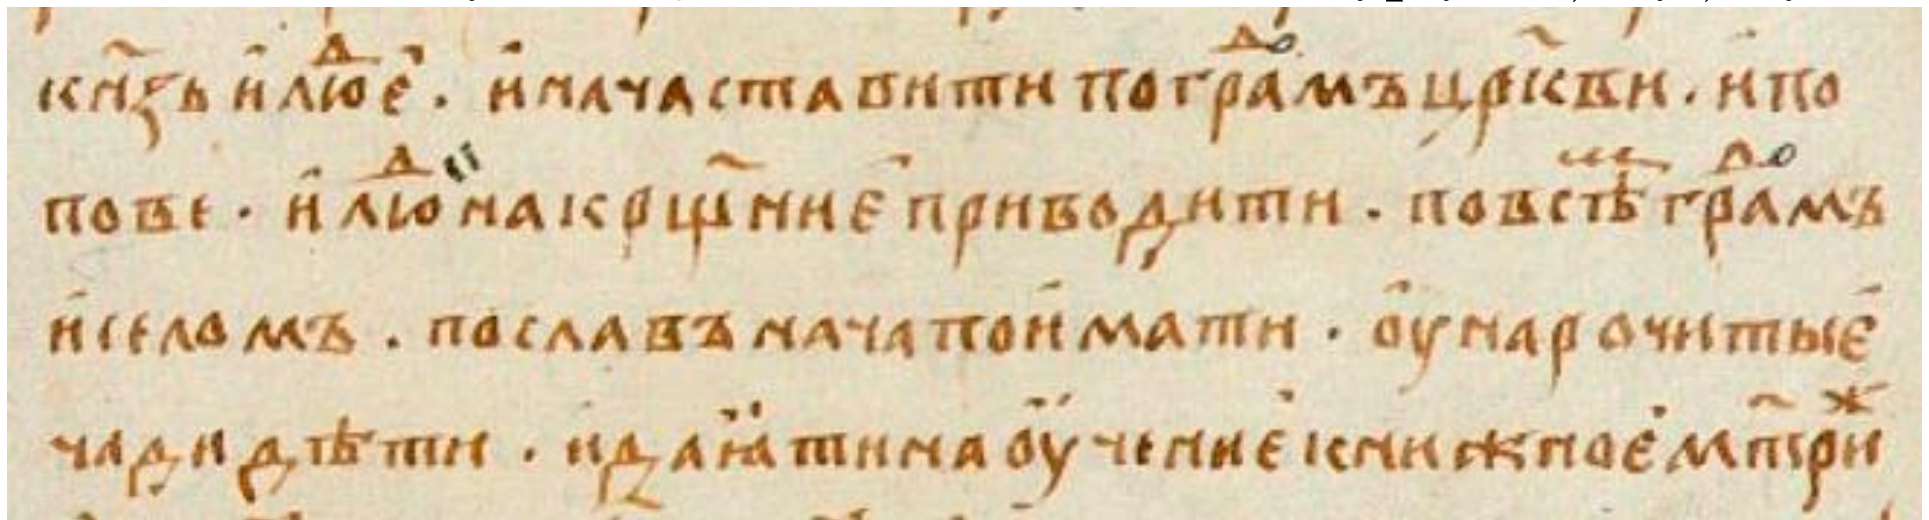 кн҃зь и҆ люⷣе҆ . и҆ нача ставити по граⷣмъ цр҃кви . и҆ по
попе . и҆ люⷣ на крщ҃ние҆ приводити . по всѣⷨ граⷣмъ
и҆ селомъ . пославъ нача пои҆мати . ѹ҆ нарочитые҆
чади дѣти . и даꙗ҆ти на ѹ҆чение҆ книжное҆ мт҃риⷤ